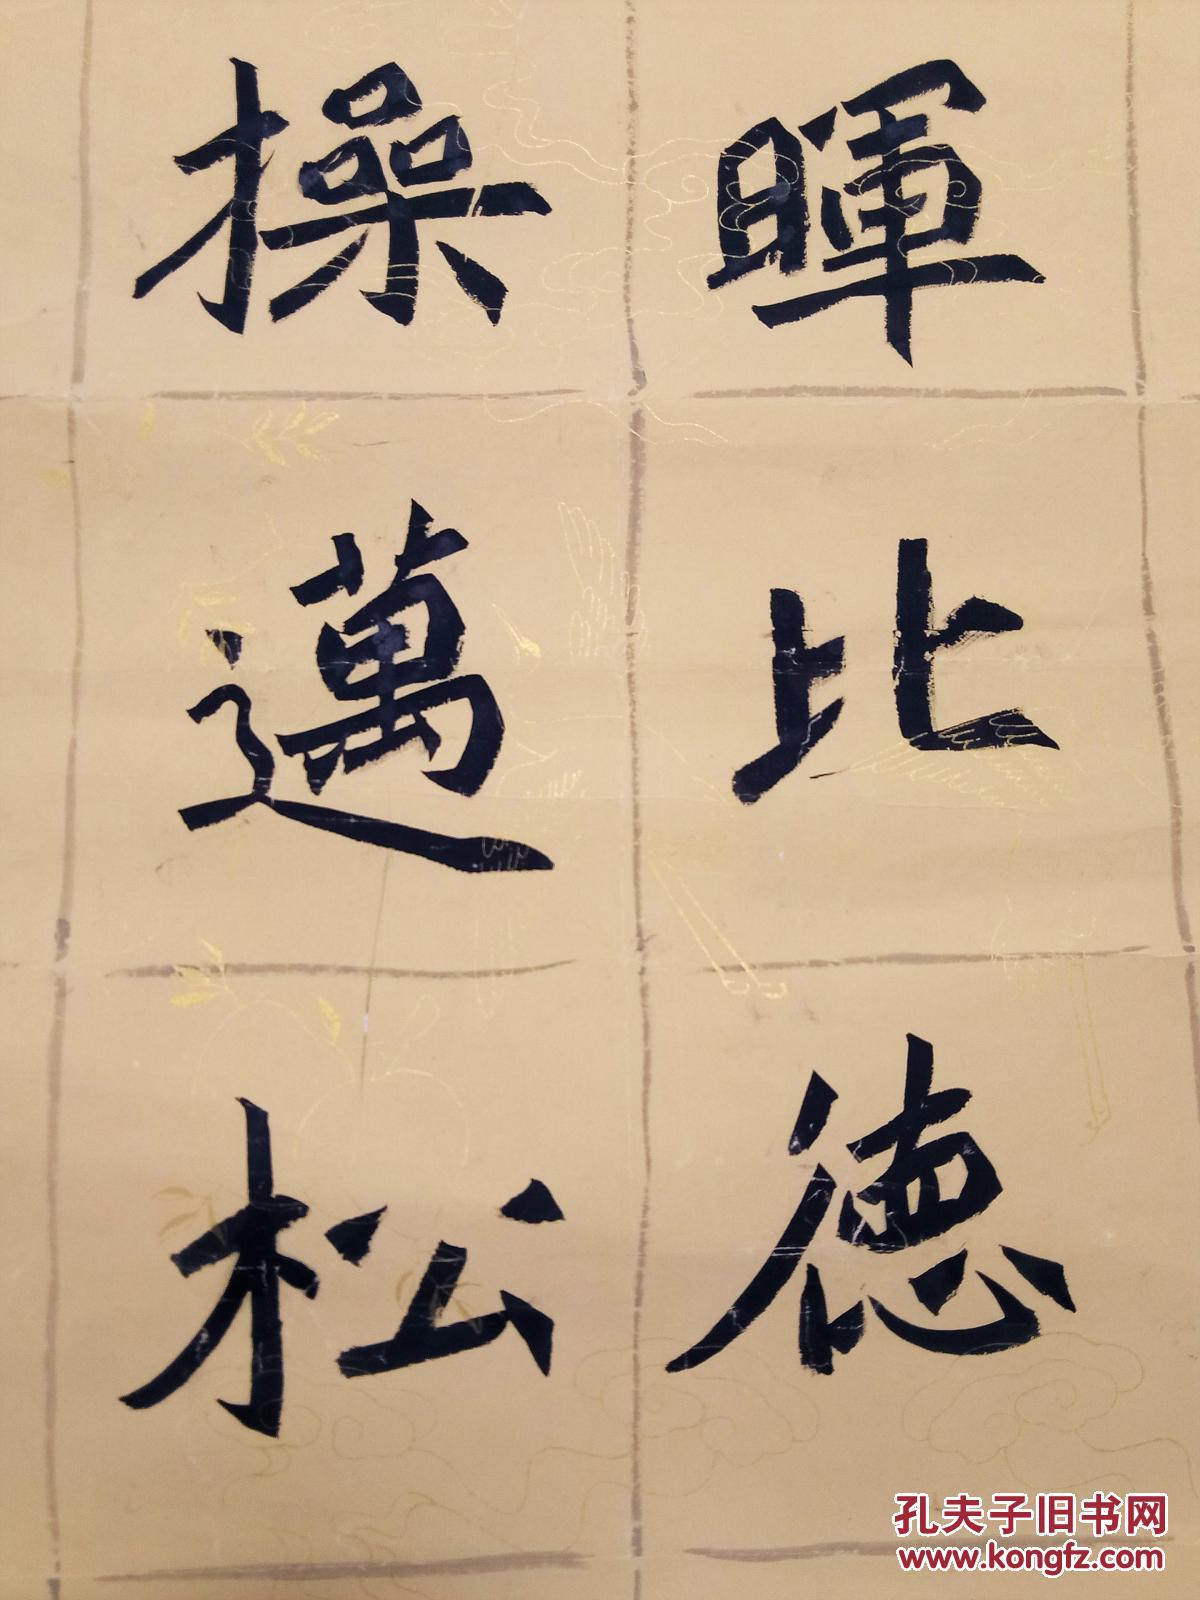 暉比德
操邁松
孔夫子旧书网
www.kongfz.com